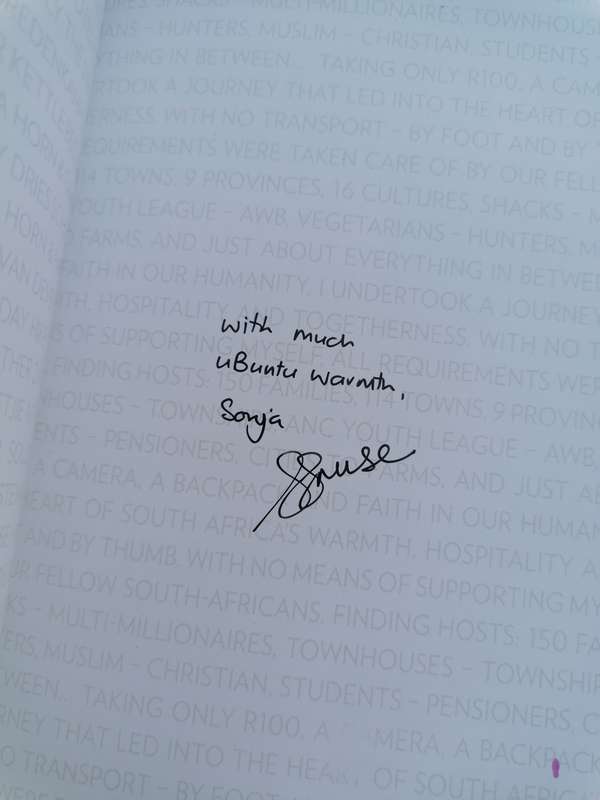 SHACKS - MULTI-MILLIONAIRES, TOWNHOUSES
- HUNTERS, MUSLIM - CHRISTIAN, STUDENTS -
IN BETWEEN... TAKING ONLY R100, A CAM
A JOURNEY THAT LED INTO THE HEART OF
WITH NO TRANSPORT - BY FOOT AND BY
REQUIREMENTS WERE TAKEN CARE OF BY OUR FELL
114 TOWNS, 9 PROVINCES, 16 CULTURES, SHACKS - M
YOUTH LEAGUE - AWB, VEGETARIANS - HUNTERS, M
FARMS, AND JUST ABOUT EVERYTHING IN BETWEE
FAITH IN OUR HUMANITY, I UNDERTOOK A JOURNEY
HOSPITALITY AND TOGETHERNESS, WITH NO T
OF SUPPORTING MYSELF, ALL REQUIREMENTS WER
with much
uBuntu warmth,
FINDING HOSTS: 150 FAMILIES, 114 TOWNS, 9 PROVINC
Sonja
ANC YOUTH LEAGUE - AWB,
- PENSIONERS, FARMS, AND JUST AB
Skruse
A CAMERA, A BACKPACK AND FAITH IN OUR HUMAN
HEART OF SOUTH AFRICA'S WARMTH, HOSPITALITY A
AND BY THUMB, WITH NO MEANS OF SUPPORTING MY
FELLOW SOUTH-AFRICANS. FINDING HOSTS: 150 FA
- MULTI-MILLIONAIRES, TOWNHOUSES - TOWNSHIP
MUSLIM - CHRISTIAN, STUDENTS - PENSIONERS, C
TAKING ONLY R100, A CAMERA, A BACKPACK
THAT LED INTO THE HEART OF SOUTH AFRICA
TRANSPORT - BY FOOT